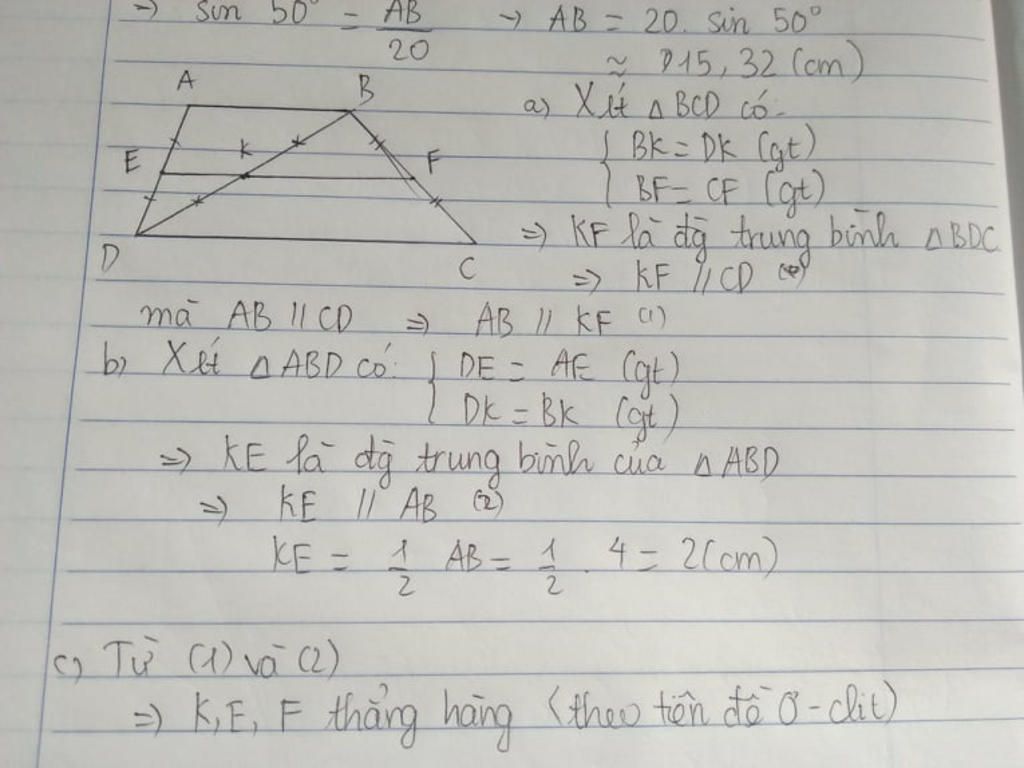 → sin 50° = AB/20 → AB = 20. sin 50°
≈ 15,32 (cm)
A B
E K F
D C
a) Xét △BCD có:
{ BK = DK (gt)
{ BF = CF (gt)
⇒ KF là đg trung bình △BDC
⇒ KF // CD (*)
mà AB // CD ⇒ AB // KF (1)
b) Xét △ABD có: { DE = AE (gt)
{ DK = BK (gt)
⇒ KE là đg trung bình của △ABD
⇒ KE // AB (2)
KE = 1/2 AB = 1/2 . 4 = 2(cm)
c) Từ (1) và (2)
⇒ K, E, F thẳng hàng (theo tiên đề Ơ-clit)